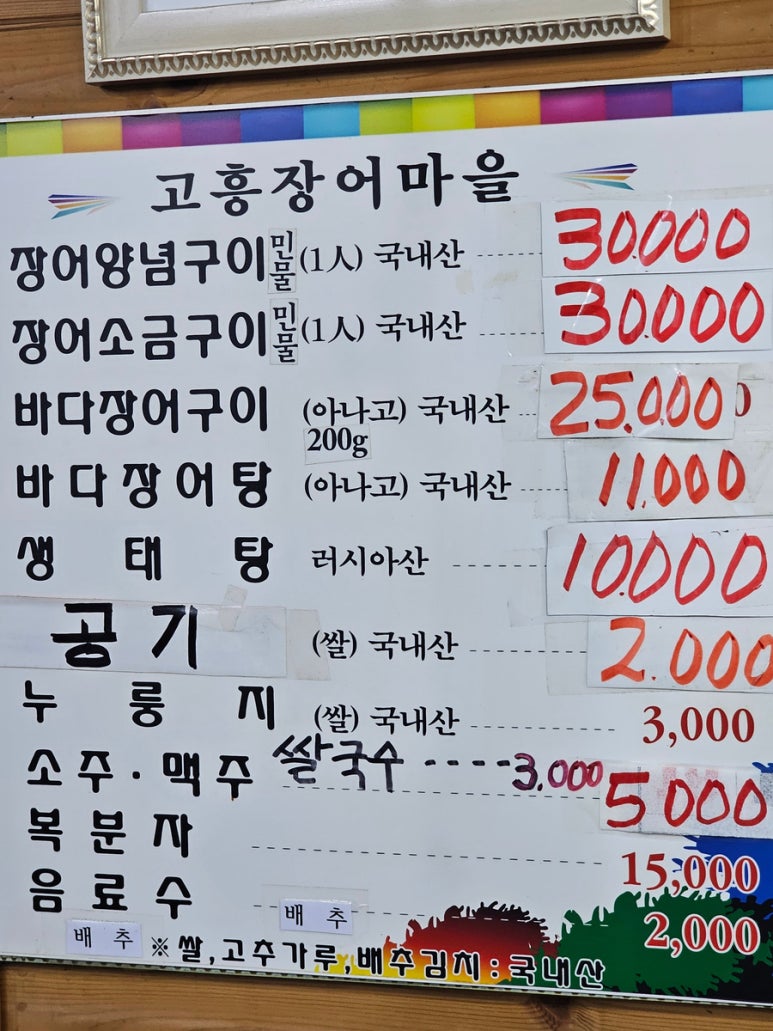 고흥장어마을
장어양념구이 민물 (1人) 국내산 30.000
장어소금구이 민물 (1人) 국내산 30.000
바다장어구이 (아나고) 국내산 25.000
200g
바다장어탕 (아나고) 국내산 11.000
생태탕 러시아산 10.000
공기 (쌀) 국내산 2.000
누룽지 (쌀) 국내산 3,000
쌀국수 ---- 3.000
소주·맥주 5000
복분자 15,000
음료수 2,000
배추 배추
※쌀,고추가루,배추김치:국내산